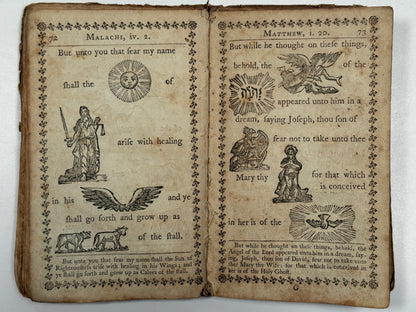 72 MALACHI, iv. 2.
But unto you that fear my name
shall the of
arise with healing
in his and ye
shall go forth and grow up as
of the stall.
But unto you that fear my name shall the Sun of
Righteousness arise with healing in his Wings; and
ye shall go forth and grow up as Calves of the stall.
MATTHEW, i. 20. 73
But while he thought on these things,
behold, the of the
יהוה
appeared unto him in a
dream, saying Joseph, thou son of
fear not to take unto thee
Mary thy for that which
is conceived
in her is of the
But while he thought on these things, behold, the
Angel of the Lord appeared unto him in a dream, say-
ing, Joseph, thou son of David, fear not to take unto
thee Mary thy Wife: for that which is conceived in
her is of the Holy Ghost.
G